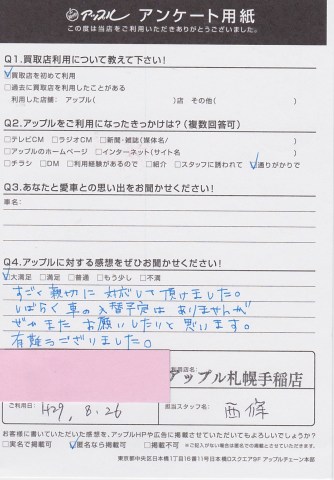 アップル アンケート用紙
この度は当店をご利用いただきありがとうございました。
Q1.買取店利用について教えて下さい!
☑買取店を初めて利用
□過去に買取店を利用したことがある
利用した店舗: アップル( )店 その他( )
Q2.アップルをご利用になったきっかけは?(複数回答可)
□テレビCM □ラジオCM □新聞・雑誌(媒体名/ )
□アップルのホームページ □インターネット(サイト名 )
□チラシ □DM □利用経験があるので □紹介 □スタッフに誘われて ☑通りがかりで
Q3.あなたと愛車との思い出をお聞かせください!
車名:
Q4.アップルに対する感想をぜひお聞かせください!
☑大満足 □満足 □普通 □もう少し □不満
すごく親切に対応して頂けました。
しばらく車の入替予定はありませんが
ぜひまたお願いしたいと思います。
有難うございました。
アップル札幌手稲店
ご利用日: H29, 8. 26
担当スタッフ名: 西條
お客様に書いていただいた感想を、アップルHPや広告に掲載させていただいてもよろしいでしょうか?
□実名で掲載可 ☑匿名なら掲載可 □掲載不可 ※ご記入がない場合は匿名での掲載とさせていただきます。
東京都中央区日本橋1丁目16番11号日本橋Dスクエア9F アップルチェーン本部